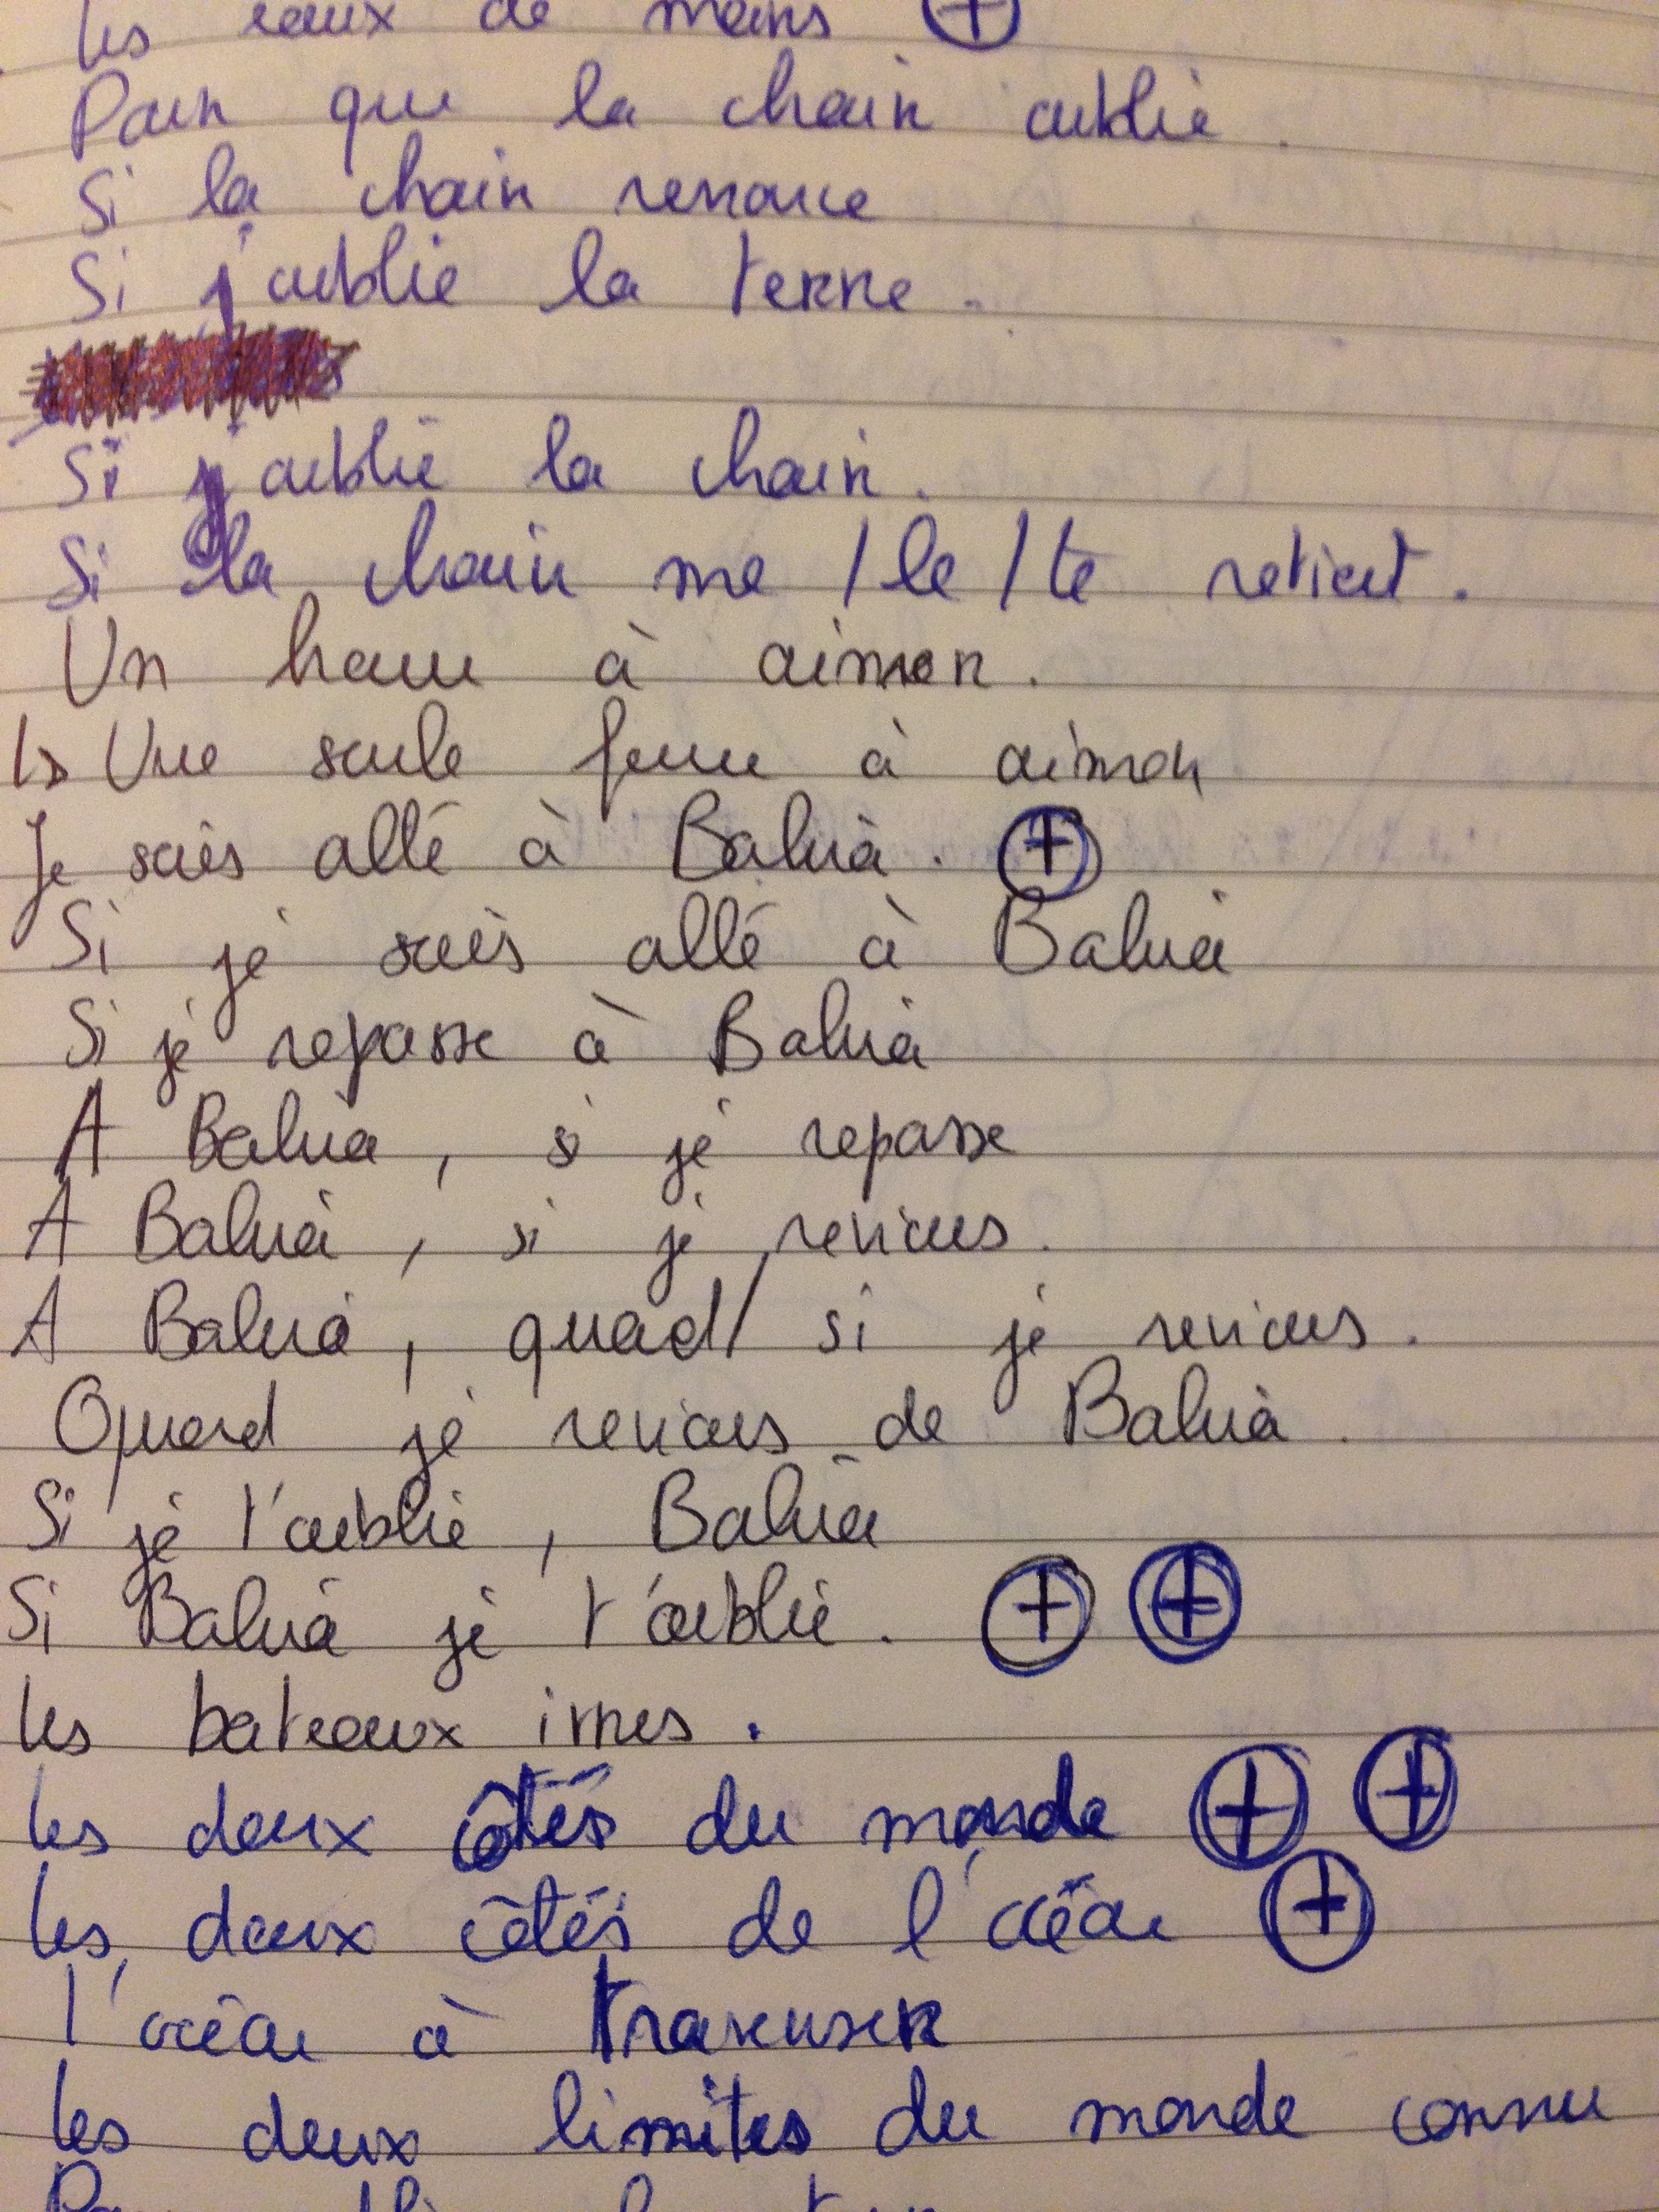 Les eaux de mains ⊕
Pour que la chair oublie.
Si la chair renonce
Si j'oublie la terre.
Si j'oublie la chair.
Si la chair me / le / te retient.
Un homme à aimer.
↳ Une seule femme à aimer
Je suis allé à Bahia. ⊕
Si je suis allé à Bahia
Si je repasse à Bahia
A Bahia, si je repasse
A Bahia, si je reviens.
A Bahia, quand / si je reviens.
Quand je reviens de Bahia.
Si je t'oublie, Bahia
Si Bahia je t'oublie. ⊕ ⊕
Les bateaux ivres.
Les deux côtés du monde ⊕ ⊕
Les deux côtés de l'océan ⊕
L'océan à traverser
Les deux limites du monde connu